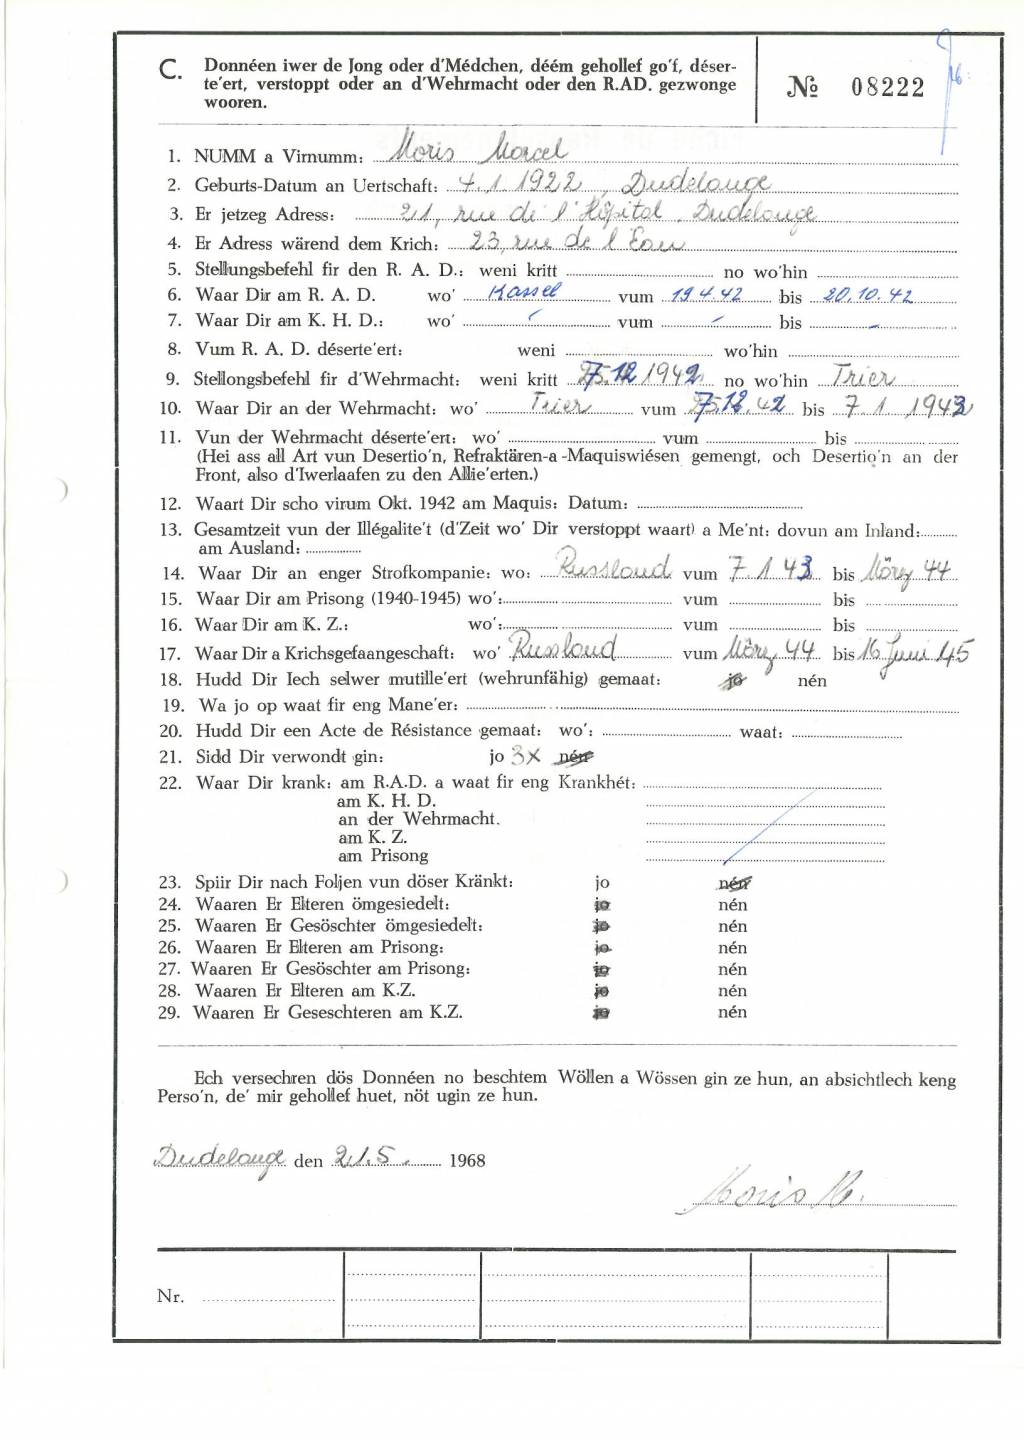 C. Donnéen iwer de Jong oder d'Médchen, déém gehollef go'f, déser-
te'ert, verstoppt oder an d'Wehrmacht oder den R.AD. gezwonge
wooren.
№ 08222
1. NUMM a Virnumm: Moris Marcel
2. Geburts-Datum an Uertschaft: 4.1.1922, Dudelange
3. Er jetzeg Adress: 21, rue de l'Hôpital, Dudelange
4. Er Adress wärend dem Krich: 23, rue de l'Eau
5. Stellungsbefehl fir den R. A. D.: weni kritt no wo'hin
6. Waar Dir am R. A. D. wo' Kassel vum 19.4.42 bis 20.10.42
7. Waar Dir am K. H. D.: wo' vum bis
8. Vum R. A. D. déserte'ert: weni wo'hin
9. Stellongsbefehl fir d'Wehrmacht: weni kritt 7.12.1942 no wo'hin Trier
10. Waar Dir an der Wehrmacht: wo' Trier vum 7.12.42 bis 7.1.1943
11. Vun der Wehrmacht déserte'ert: wo' vum bis
(Hei ass all Art vun Desertio'n, Refraktären-a -Maquiswiésen gemengt, och Desertio'n an der
Front, also d'Iwerlaafen zu den Allie'erten.)
12. Waart Dir scho virum Okt. 1942 am Maquis: Datum:
13. Gesamtzeit vun der Illégalite't (d'Zeit wo' Dir verstoppt waart) a Me'nt: dovun am Inland:
am Ausland:
14. Waar Dir an enger Strofkompanie: wo: Russland vum 7.1.43 bis März 44
15. Waar Dir am Prisong (1940-1945) wo': vum bis
16. Waar Dir am K. Z.: wo': vum bis
17. Waar Dir a Krichsgefaangeschaft: wo' Russland vum März 44 bis 16 Juni 45
18. Hudd Dir Iech selwer mutille'ert (wehrunfähig) gemaat: jo nén
19. Wa jo op waat fir eng Mane'er:
20. Hudd Dir een Acte de Résistance gemaat: wo': waat:
21. Sidd Dir verwondt gin: jo 3x nén
22. Waar Dir krank: am R.A.D. a waat fir eng Krankhét:
am K. H. D.
an der Wehrmacht.
am K. Z.
am Prisong
23. Spiir Dir nach Foljen vun döser Kränkt: jo nén
24. Waaren Er Elteren ömgesiedelt: jo nén
25. Waaren Er Gesöschter ömgesiedelt: jo nén
26. Waaren Er Elteren am Prisong: jo nén
27. Waaren Er Gesöschter am Prisong: jo nén
28. Waaren Er Elteren am K.Z. jo nén
29. Waaren Er Geseschteren am K.Z. jo nén
Ech versechren dös Donnéen no beschtem Wöllen a Wössen gin ze hun, an absichtlech keng
Perso'n, de' mir gehollef huet, nöt ugin ze hun.
Dudelange den 21.5. 1968
Moris M.
Nr.